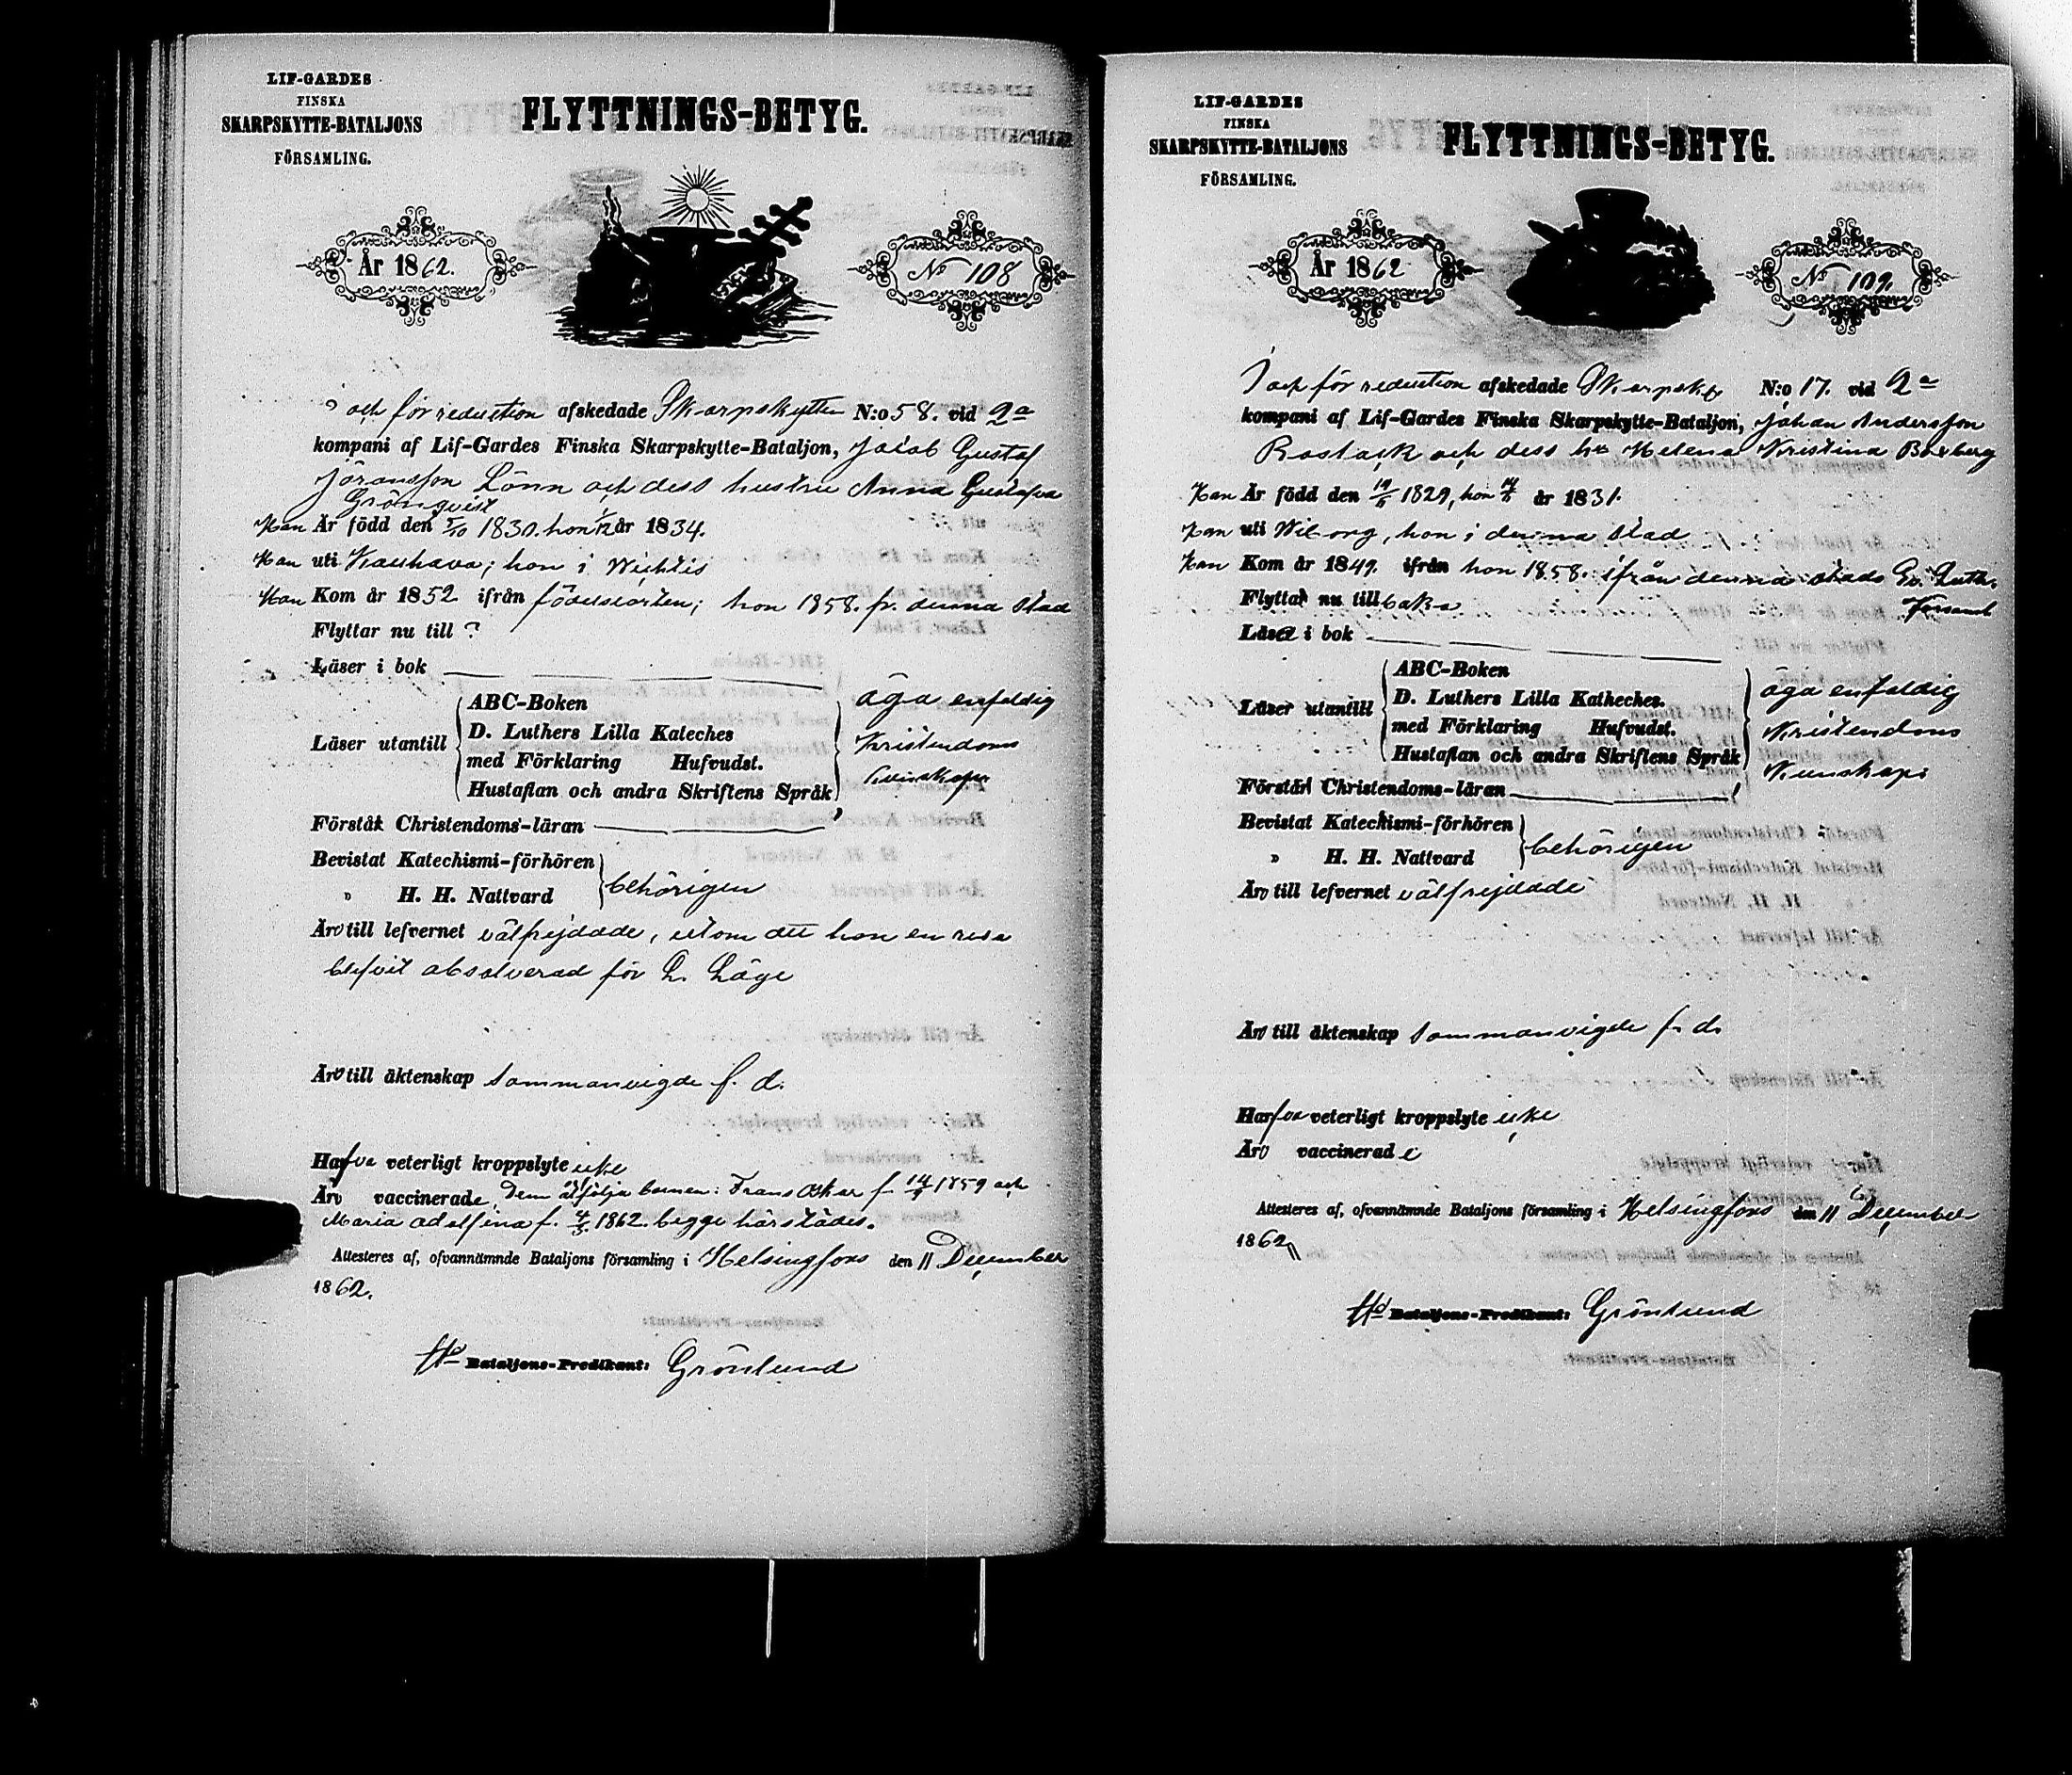 LIF-GARDES
FINSKA
SKARPSKYTTE-BATALJONS
FÖRSAMLING.
FLYTTNINGS-BETYG.
År 1862.
No 108
I och för reduction afskedade Skarpskytten N:o 58. vid 2a
kompani af Lif-Gardes Finska Skarpskytte-Bataljon, Jacob Gustaf
Jöransson Lönn och dess hustru Anna Gustafva
Grönqvist
Han Är född den 5/10 1830. hon 1/12 år 1834.
Han uti Kauhava; hon i Wichtis
Han Kom år 1852 ifrån födelseorten; hon 1858. fr. denna stad
Flyttar nu till ?
Läser i bok
Läser utantill
ABC-Boken
D. Luthers Lilla Kateches
med Förklaring Hufvudst.
Hustaflan och andra Skriftens Språk
äga enfaldig
Kristendoms
kunskap
Förstår Christendoms-läran
Bevistat Katechismi-förhören
" H. H. Nattvard
behörigen
Äro till lefvernet välfrejdade, utom att hon en resa
blifvit absolverad för L. Läge
Äro till äktenskap sammanvigde f. d.
Hafva veterligt kroppslyte icke
Äro vaccinerade. Dem åtfölja barnen: Frans Oskar f. 14/9 1859 och
Maria Adolfina f. 4/3 1862. begge härstädes.
Attesteres af, ofvannämnde Bataljons församling i Helsingfors den 11 December
1862.
Bataljons-Predikant: Grönlund
LIF-GARDES
FINSKA
SKARPSKYTTE-BATALJONS
FÖRSAMLING.
FLYTTNINGS-BETYG.
År 1862
No 109.
I och för reduction afskedade Skarpsk. N:o 17. vid 2a
kompani af Lif-Gardes Finska Skarpskytte-Bataljon, Johan Andersson
Rostack och dess hu Helena Kristina Boxberg
Han Är född den 1829, hon år 1831.
Han uti Wiborg, hon i denna stad
Han Kom år 1849. ifrån hon 1858. ifrån denna stads Ev. Luth.
Församl
Flyttar nu tillbaka
Läsa i bok
Läser utantill
ABC-Boken
D. Luthers Lilla Katheches.
med Förklaring Hufvudst.
Hustaflan och andra Skriftens Språk
äga enfaldig
Kristendoms
Kunskap;
Förstår Christendoms-läran
Bevistat Katechismi-förhören
" H. H. Nattvard
behörigen
Äro till lefvernet välfrejdade
Äro till äktenskap sammanvigde f. d.
Hafva veterligt kroppslyte icke
Äro vaccinerade
Attesteres af, ofvannämnde Bataljons församling i Helsingfors den 11 December
1862
Bataljons-Predikant: Grönlund